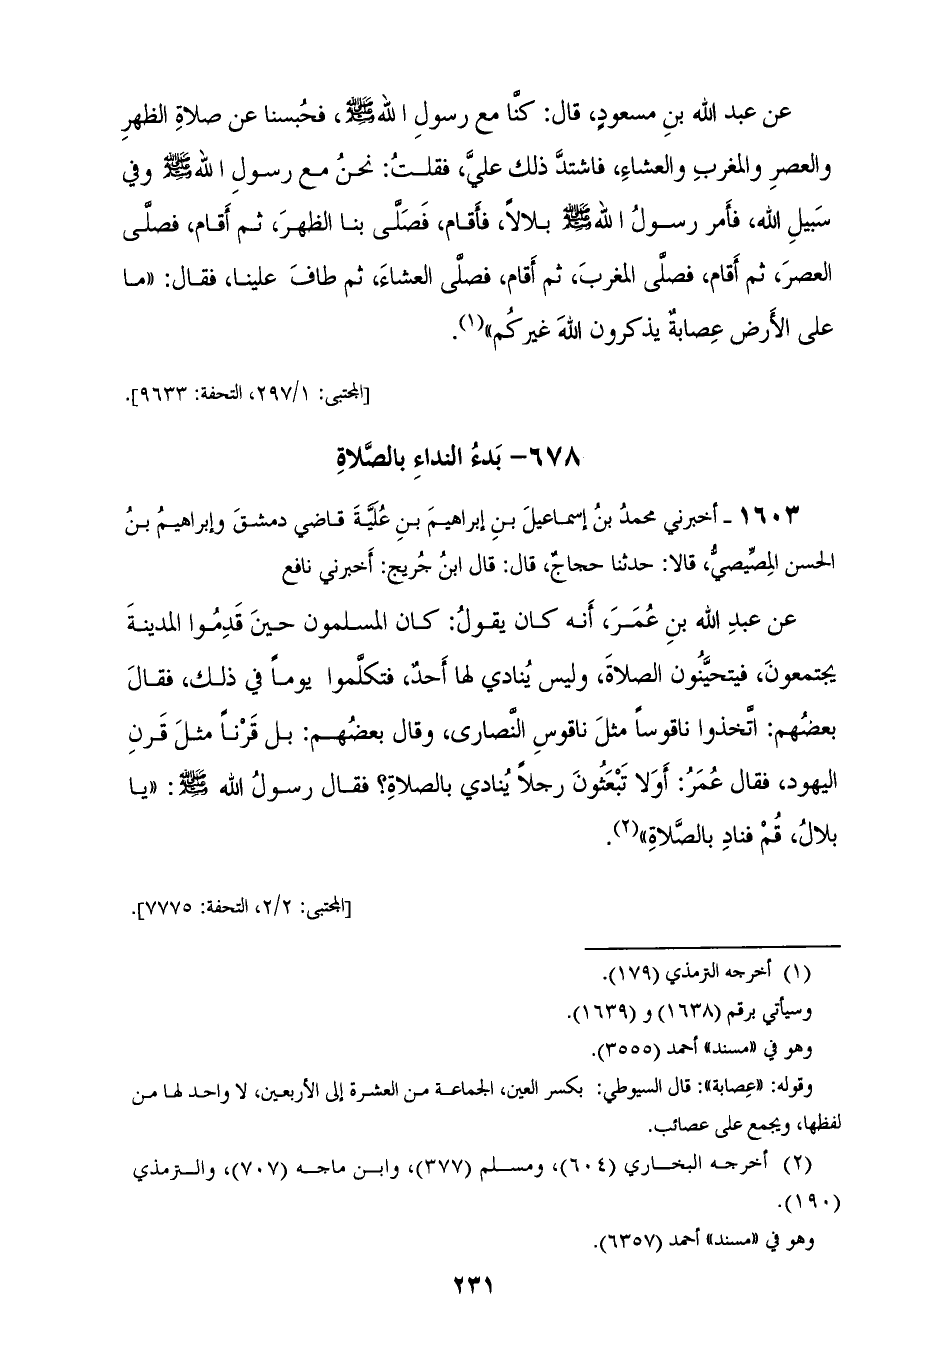 عن عبد الله بنِ مسعودٍ، قال: كنَّا مع رسولِ الله ﷺ، فحُبسنا عن صلاةِ الظهرِ
والعصرِ والمغربِ والعشاءِ، فاشتدَّ ذلك عليَّ، فقلتُ: نحنُ مع رسولِ الله ﷺ وفي
سَبيلِ الله، فأَمر رسولُ الله ﷺ بلالاً، فأَقام، فَصَلَّى بنا الظهرَ، ثم أَقام، فصلَّى
العصرَ، ثم أَقام، فصلَّى المغربَ، ثم أَقام، فصلَّى العشاءَ، ثم طافَ علينا، فقال: «ما
على الأَرض عِصابةٌ يذكرون اللهَ غيركُم»(١).
[المجتبى: ٢٩٧/١، التحفة: ٩٦٣٣].
٦٧٨- بَدءُ النداءِ بالصَّلاةِ
١٦٠٣ - أخبرني محمدُ بنُ إسماعيلَ بنِ إبراهيمَ بنِ عُلَيَّةَ قاضي دمشقَ وإبراهيمُ بنُ
الحسن المِصِّيصيُّ، قالا: حدثنا حجاجٌ، قال: قال ابنُ جُريج: أَخبرني نافع
عن عبدِ الله بنِ عُمَرَ، أَنه كان يقولُ: كان المسلمون حينَ قَدِمُوا المدينةَ
يجتمعونَ، فيتحيَّنُون الصلاةَ، وليس يُنادي لها أَحدٌ، فتكلَّموا يوماً في ذلك، فقالَ
بعضُهم: اتَّخذوا ناقوساً مثلَ ناقوسِ النَّصارى، وقال بعضُهم: بل قَرْناً مثلَ قَرنِ
اليهود، فقال عُمَرُ: أَوَلا تَبْعَثُونَ رجلاً يُنادي بالصلاةِ؟ فقال رسولُ الله ﷺ: «يا
بلالُ، قُمْ فنادِ بالصَّلاةِ»(٢).
[المجتبى: ٢/٢، التحفة: ٧٧٧٥].
(١) أخرجه الترمذي (١٧٩).
وسيأتي برقم (١٦٣٨) و (١٦٣٩).
وهو في «مسند» أحمد (٣٥٥٥).
وقوله: «عِصابة»: قال السيوطي: بكسر العين، الجماعة من العشرة إلى الأربعين، لا واحد لها من
لفظها، ويجمع على عصائب.
(٢) أخرجه البخاري (٦٠٤)، ومسلم (٣٧٧)، وابن ماجه (٧٠٧)، والترمذي
(١٩٠).
وهو في «مسند» أحمد (٦٣٥٧).
٢٣١